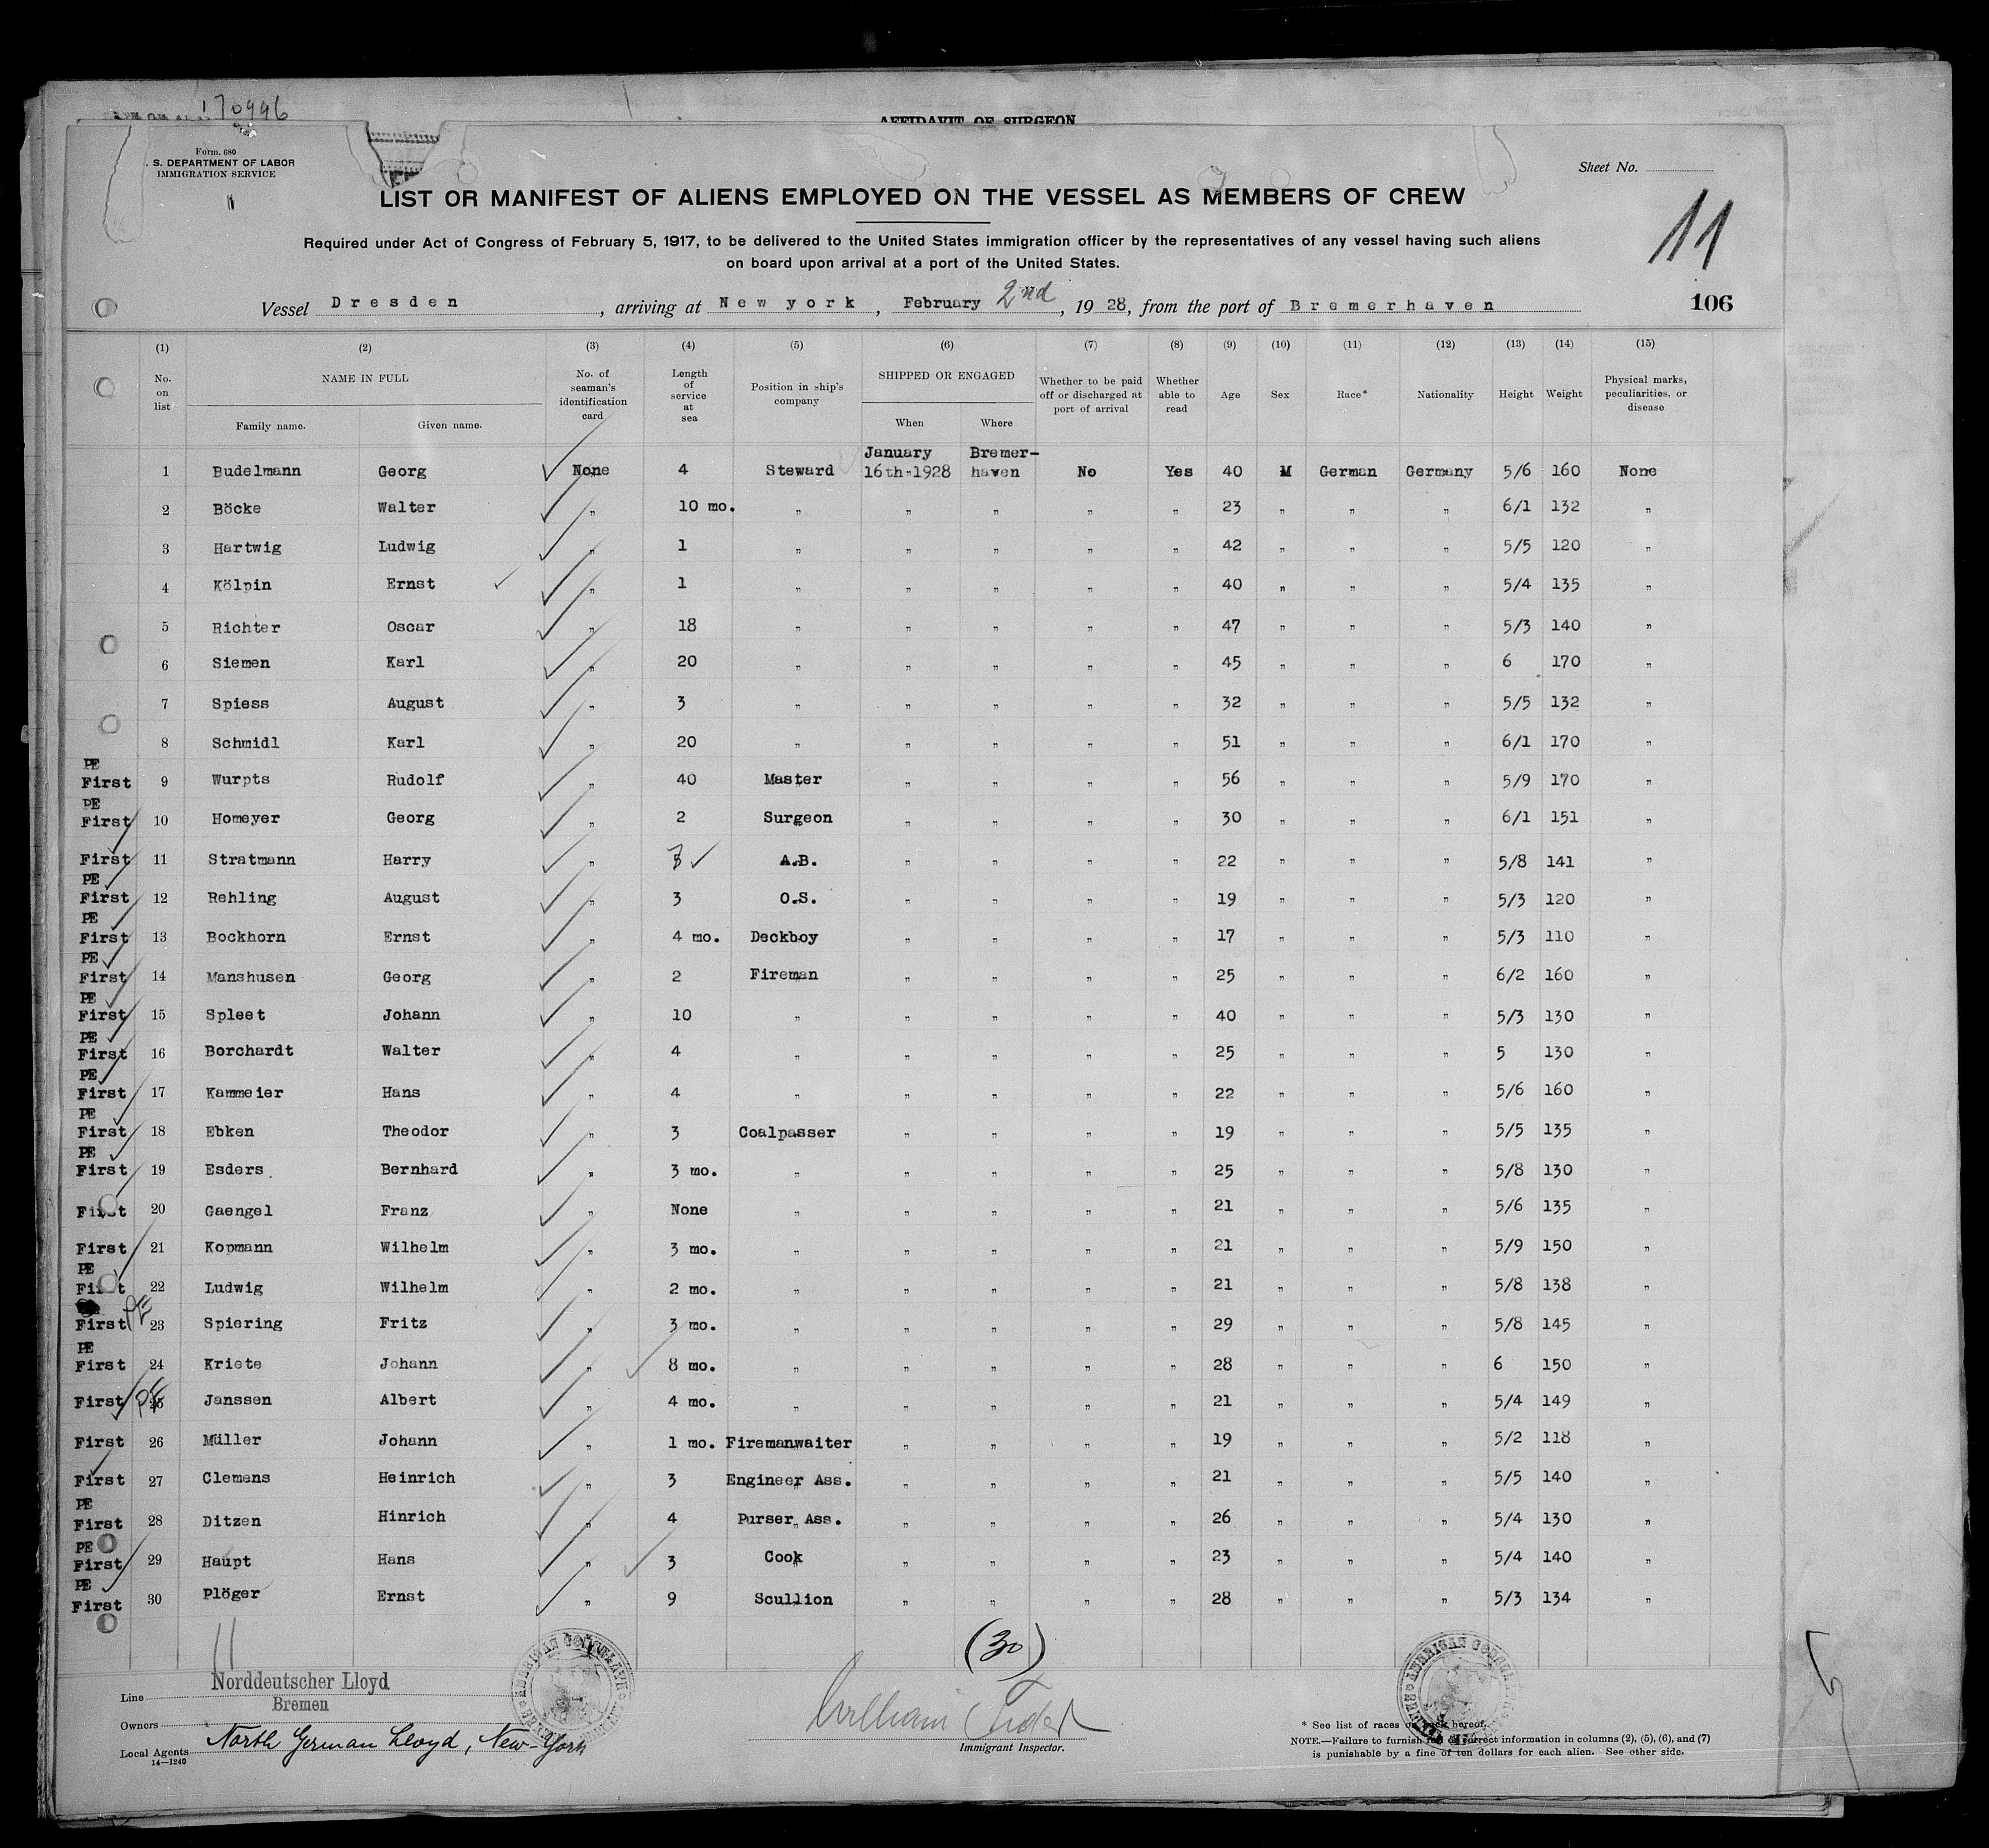 170996
AFFIDAVIT OF SURGEON
Form. 680
. S. DEPARTMENT OF LABOR
IMMIGRATION SERVICE
Sheet No.
LIST OR MANIFEST OF ALIENS EMPLOYED ON THE VESSEL AS MEMBERS OF CREW
11
Required under Act of Congress of February 5, 1917, to be delivered to the United States immigration officer by the representatives of any vessel having such aliens
on board upon arrival at a port of the United States.
Vessel Dresden, arriving at New york, February 2nd, 1928, from the port of Bremerhaven
106
(1) (2) (3) (4) (5) (6) (7) (8) (9) (10) (11) (12) (13) (14) (15)
No. on list NAME IN FULL Family name. Given name. No. of seaman's identification card Length of service at sea Position in ship's company SHIPPED OR ENGAGED When Where Whether to be paid off or discharged at port of arrival Whether able to read Age Sex Race* Nationality Height Weight Physical marks, peculiarities, or disease
1 Budelmann Georg None 4 Steward January 16th-1928 Bremer-haven No Yes 40 M German Germany 5/6 160 None
2 Böcke Walter " 10 mo. " " " " " 23 " " " 6/1 132 "
3 Hartwig Ludwig " 1 " " " " " 42 " " " 5/5 120 "
4 Kölpin Ernst " 1 " " " " " 40 " " " 5/4 135 "
5 Richter Oscar " 18 " " " " " 47 " " " 5/3 140 "
6 Siemen Karl " 20 " " " " " 45 " " " 6 170 "
7 Spiess August " 3 " " " " " 32 " " " 5/5 132 "
8 Schmidl Karl " 20 " " " " " 51 " " " 6/1 170 "
PE
First 9 Wurpts Rudolf " 40 Master " " " " 56 " " " 5/9 170 "
PE
First 10 Homeyer Georg " 2 Surgeon " " " " 30 " " " 6/1 151 "
First 11 Stratmann Harry " 7 A.B. " " " " 22 " " " 5/8 141 "
PE
First 12 Rehling August " 3 O.S. " " " " 19 " " " 5/3 120 "
PE
First 13 Bockhorn Ernst " 4 mo. Deckboy " " " " 17 " " " 5/3 110 "
PE
First 14 Manshusen Georg " 2 Fireman " " " " 25 " " " 6/2 160 "
PE
First 15 Spleet Johann " 10 " " " " " 40 " " " 5/3 130 "
PE
First 16 Borchardt Walter " 4 " " " " " 25 " " " 5 130 "
PE
First 17 Kammeier Hans " 4 " " " " " 22 " " " 5/6 160 "
PE
First 18 Ebken Theodor " 3 Coalpasser " " " " 19 " " " 5/5 135 "
PE
First 19 Esders Bernhard " 3 mo. " " " " " 25 " " " 5/8 130 "
First 20 Gaengel Franz " None " " " " " 21 " " " 5/6 135 "
First 21 Kopmann Wilhelm " 3 mo. " " " " " 21 " " " 5/9 150 "
PE
First 22 Ludwig Wilhelm " 2 mo. " " " " " 21 " " " 5/8 138 "
First PE 23 Spiering Fritz " 3 mo. " " " " " 29 " " " 5/8 145 "
PE
First 24 Kriete Johann " 8 mo. " " " " " 28 " " " 6 150 "
First PE 25 Janssen Albert " 4 mo. " " " " " 21 " " " 5/4 149 "
First 26 Müller Johann " 1 mo. Firemanwaiter " " " " 19 " " " 5/2 118 "
First 27 Clemens Heinrich " 3 Engineer Ass. " " " " 21 " " " 5/5 140 "
PE
First 28 Ditzen Hinrich " 4 Purser Ass. " " " " 26 " " " 5/4 130 "
PE
First 29 Haupt Hans " 3 Cook " " " " 23 " " " 5/4 140 "
PE
First 30 Plöger Ernst " 9 Scullion " " " " 28 " " " 5/3 134 "
11
(30)
Line Norddeutscher Lloyd
Bremen
Owners
Local Agents North German Lloyd, New-York
14—1240
William
Immigrant Inspector.
AMERICAN
AMERICAN
* See list of races on back hereof.
NOTE.—Failure to furnish full or correct information in columns (2), (5), (6), and (7)
is punishable by a fine of ten dollars for each alien. See other side.